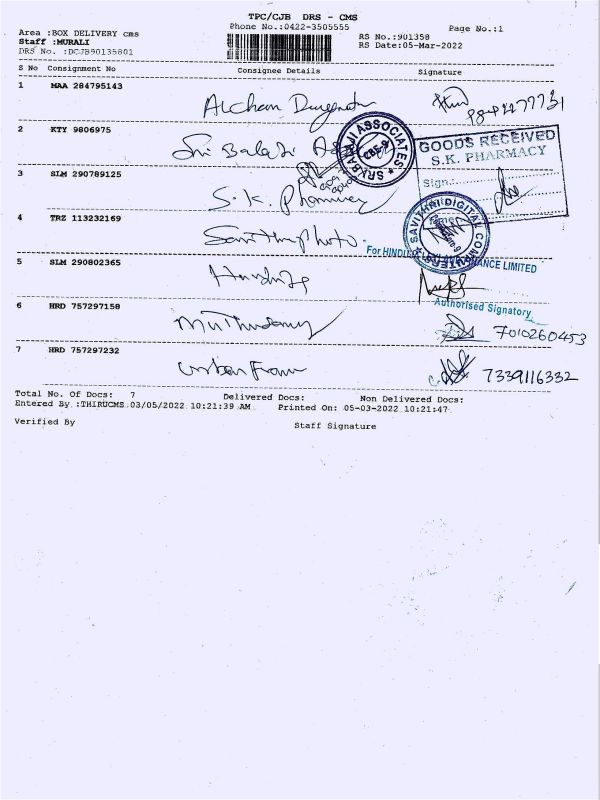 TPC/CJB DRS - CMS
Phone No.:0422-3505555
Page No.:1
Area :BOX DELIVERY cms
Staff :MURALI
DRS No. :DCJB90135801
RS No.:901358
RS Date:05-Mar-2022
S No Consignment No Consignee Details Signature
1 MAA 284795143
9842277731
2 KTY 9806975
Sri Balaji
SRI BALAJI ASSOCIATES
CBE-9
GOODS RECEIVED
S.K. PHARMACY
Sign:
3 SLM 290789125
S.K. Pharmacy
4 TRZ 113232169
Savithri Photo
SAVITHRI DIGITAL COMPUTERS
For HINDUJA LEYLAND FINANCE LIMITED
5 SLM 290802365
Authorised Signatory
6 HRD 757297158
Muthusamy
7010260453
7 HRD 757297232
Urban From
7339116332
Total No. Of Docs: 7 Delivered Docs: Non Delivered Docs:
Entered By :THIRUCMS 03/05/2022 10:21:39 AM Printed On: 05-03-2022 10:21:47
Verified By Staff Signature